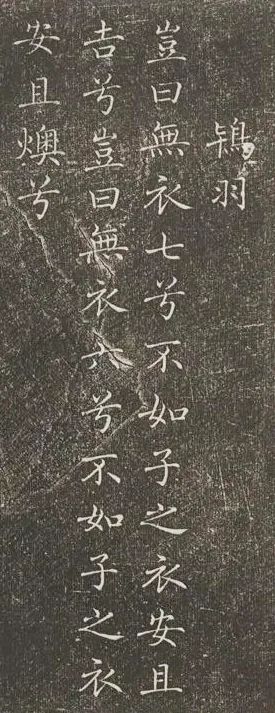 鴇羽
豈曰無衣七兮不如子之衣安且
吉兮豈曰無衣六兮不如子之衣
安且燠兮